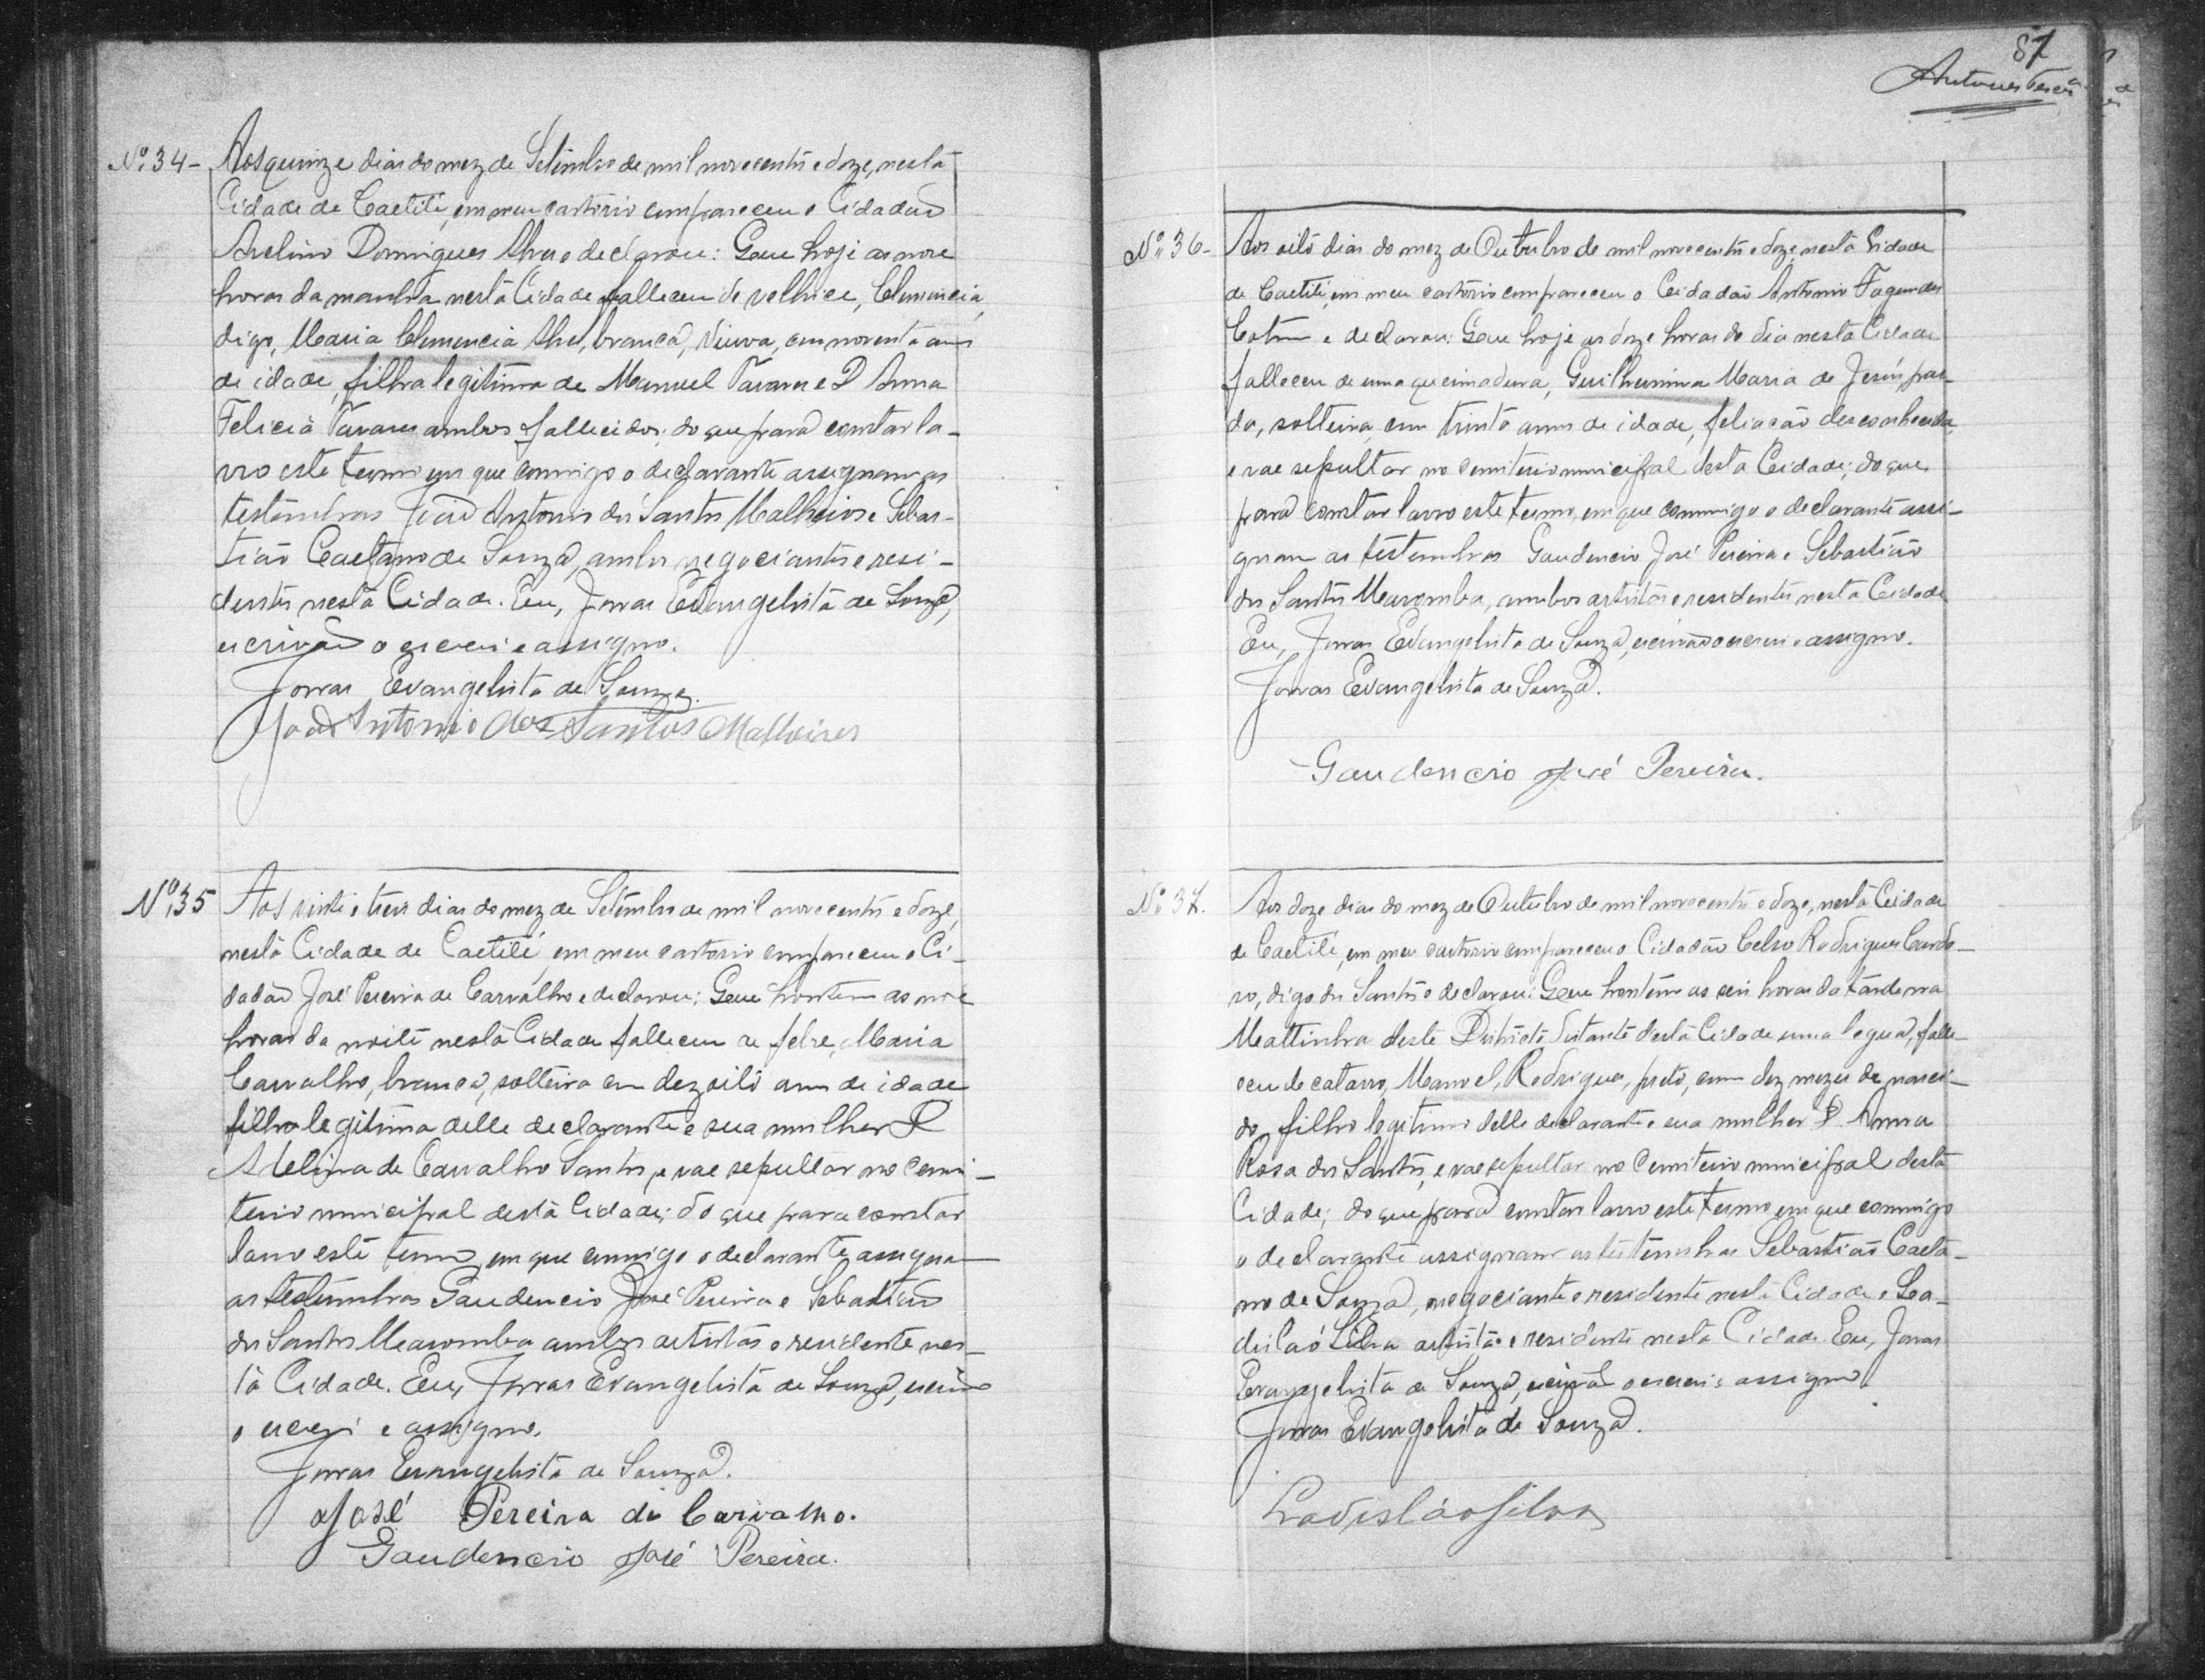 Nº 34- Aos quinze dias do mez de Setembro de mil novecentos e doze, nesta
Cidade de Caetité, em meu cartorio compareceu o Cidadão
Avelino Domingues e declarou: Que hoje as nove
horas da manhã nesta Cidade falleceu de velhice, Clemencia,
digo, Maria Clemencia branca, viuva, com noventa annos
de idade, filha legitima de Manuel Tavares e D Anna
Felicia Tavares ambos fallecidos; do que para constar la-
vro este termo em que commigo o declarante assignam as
testemunhas João Antonio dos Santos Malheiros e Sebas-
tião Caetano de Souza, ambos negociantes e resi-
dentes nesta Cidade. Eu, Jonas Evangelista de Souza,
escrivão o escrevi e assigno.
Jonas Evangelista de Souza.
João Antonio dos Santos Malheiros
Nº 35 Aos vinte e tres dias do mez de Setembro de mil novecentos e doze,
nesta Cidade de Caetité, em meu cartorio compareceu o Ci-
dadão José Pereira de Carvalho e declarou: Que hontem as nove
horas da noite nesta Cidade falleceu de febre, Maria
Carvalho, branca, solteira com dezoito annos de idade
filha legitima delle declarante e sua mulher D
Adelina de Carvalho Santos, e vae sepultar no Cemi-
terio municipal desta Cidade; do que para constar
lavro este termo, em que commigo o declarante assigna
as testemunhas Gaudencio José Pereira e Sebastião
dos Santos Maromba ambos artistas e residente nes-
ta Cidade. Eu, Jonas Evangelista de Souza, escrivão
o escrevi e assigno.
Jonas Evangelista de Souza.
José Pereira de Carvalho.
Gaudencio José Pereira.
87
Nº 36- Aos oito dias do mez de Outubro de mil novecentos e doze, nesta Cidade
de Caetité, em meu cartorio compareceu o Cidadão Antonio Fagundes
Cotrim e declarou: Que hoje as doze horas do dia nesta Cidade
falleceu de uma queimadura, Guilhermina Maria de Jesús, par-
da, solteira, com trinta annos de idade, feliação desconhecida,
e vae sepultar no cemiterio municipal desta Cidade; do que
para constar lavro este termo, em que commigo o declarante assi-
gnam as testemunhas Gaudencio José Pereira e Sebastião
dos Santos Maromba, ambos artistas e residentes nesta Cidade
Eu, Jonas Evangelista de Souza, escrivão o escrevi e assigno.
Jonas Evangelista de Souza.
Gaudencio José Pereira.
Nº 37. Aos doze dias do mez de Outubro de mil novecentos e doze, nesta Cidade
de Caetité, em meu cartorio compareceu o Cidadão Celso Rodrigues Cardo-
so, digo dos Santos e declarou: Que hontem as seis horas da tarde na
Mattinha deste Districto distante desta Cidade uma legua, falle-
ceu de catarro, Manoel, Rodrigues, preto, com dez mezes de nasci-
do, filho legitimo delle declarante e sua mulher D. Anna
Rosa dos Santos, e vae sepultar no Cemiterio municipal desta
Cidade; do que para constar lavro este termo em que commigo
o declarante assignam as testemunhas Sebastião Caeta-
no de Souza, negociante e residente nesta Cidade e La-
disláo Silva artista e residente nesta Cidade. Eu, Jonas
Evangelista de Souza, escrivão o escrevi e assigno.
Jonas Evangelista de Souza.
Ladisláo Silva